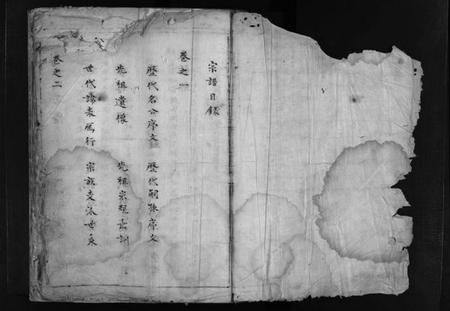 宗譜目録
卷之一
歷代名公序文 歷代嗣孫序文
先祖遺像 先祖宗規家訓
世代諱表為行 宗族支派世系
卷之二